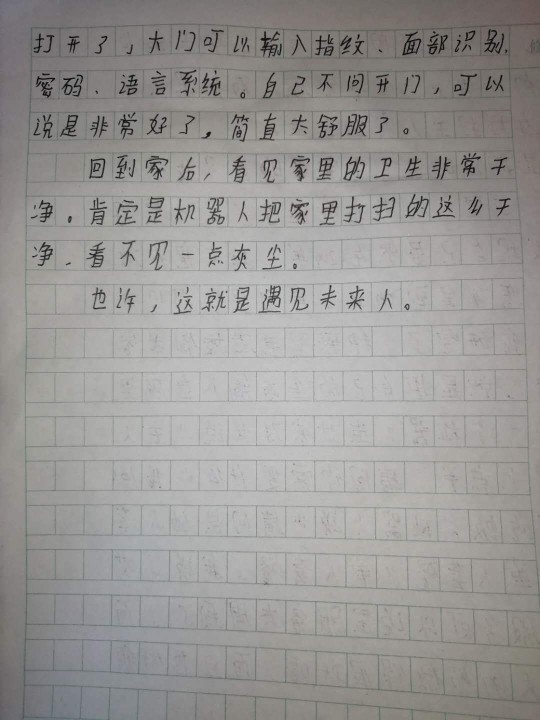 打开了，大门可以输入指纹、面部识别、
密码、语言系统。自己不问开门，可以
说是非常好了，简直太舒服了。
回到家后，看见家里的卫生非常干
净。肯定是机器人把家里打扫的这么干
净，看不见一点灰尘。
也许，这就是遇见未来人。